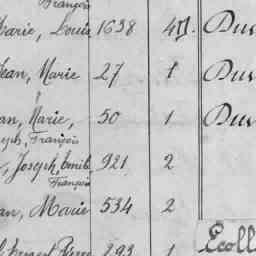 François
Marie, Louis 1638 4 Du
Jean, Marie 27 1 Du
an, Marie, 50 1 Du
seph, François
, Joseph, Emile 921 2
François
an, Marie 534 2
293 1 Écoll